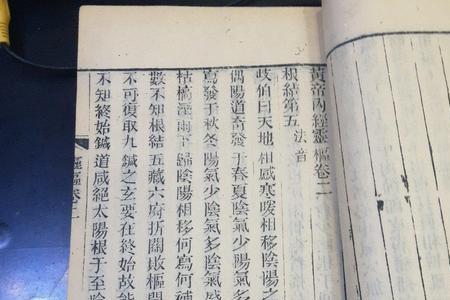 黃帝內經靈樞卷二
根結第五 法音
歧伯曰天地相感寒暖相移陰陽之
偶陽道奇發于春夏陰氣少陽氣多
焉發于秋冬陽氣少陰氣多陰氣盛
枯槁溼雨下歸陰陽相移何寫何補
數不知根結五藏六府折關敗樞開
不可復取九鍼之玄要在終始故能
不知終始鍼道咸絕太陽根于至陰
靈樞卷二